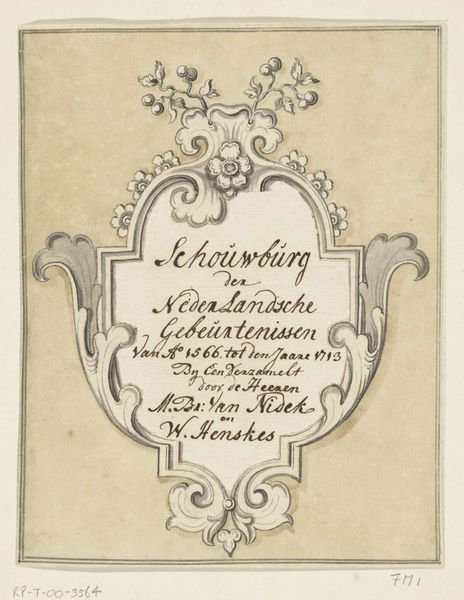 Schouwburg
der
Nederlandsche
Gebeurtenissen
Van Aº 1566. tot den Jaare 1713
By Een Verzamelt
door de Heeren
M. Br: Van Nidek
en
W. Henskes
RP-T-00-3564
FM1